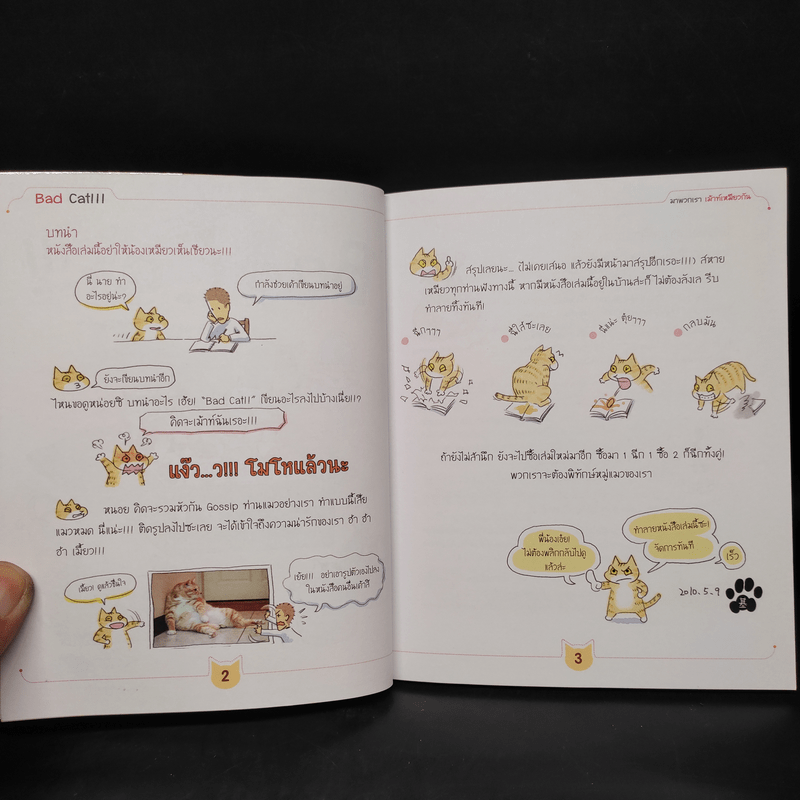 Bad Cat!!!
บทนำ
หนังสือเล่มนี้อย่าให้น้องเหมียวเห็นเชียวนะ!!!
นี่ นาย ทำ
อะไรอยู่น่ะ?
กำลังช่วยเค้าเขียนบทนำอยู่
ยังจะเขียนบทนำอีก
ไหนขอดูหน่อยซิ บทนำอะไร เฮ้ย! "Bad Cat!!" เขียนอะไรลงไปบ้างเนี่ย!!?
คิดจะเม้าท์ฉันเรอะ!!!
แง๊ว...ว!!! โมโหแล้วนะ
หนอย คิดจะรวมหัวกัน Gossip ท่านแมวอย่างเรา ทำแบบนี้เสีย
แมวหมด นี่แน่ะ!!! ติดรูปลงไปซะเลย จะได้เข้าใจถึงความน่ารักของเรา ฮ่า ฮ่า
ฮ่า เมี้ยว!!!
เมี้ยว! ดูแล้วชื่นใจ
เฮ้ย!!! อย่าเอารูปตัวเองไปลง
ในหนังสือคนอื่นเค้าสิ
2
มาพวกเรา เม้าท์เหมียวกัน
สรุปเลยนะ... (ไม่เคยเสนอ แล้วยังมีหน้ามาสรุปอีกเรอะ!!!) สหาย
เหมียวทุกท่านฟังทางนี้ หากมีหนังสือเล่มนี้อยู่ในบ้านล่ะก็ ไม่ต้องลังเล รีบ
ทำลายทิ้งทันที!
ฉีกๆๆๆ
ฉี่ใส่ซะเลย
นี่แน่ะ ตุ้ยๆๆๆ
กลบมัน
ถ้ายังไม่สำนึก ยังจะไปซื้อเล่มใหม่มาอีก ซื้อมา 1 ฉีก 1 ซื้อ 2 ก็ฉีกทิ้งคู่!
พวกเราจะต้องพิทักษ์หมู่แมวของเรา
พี่น้องเอ๋ย!
ไม่ต้องพลิกกลับไปดู
แล้วล่ะ
ทำลายหนังสือเล่มนี้ซะ!
จัดการทันที
เร็ว
2010.5.9
3